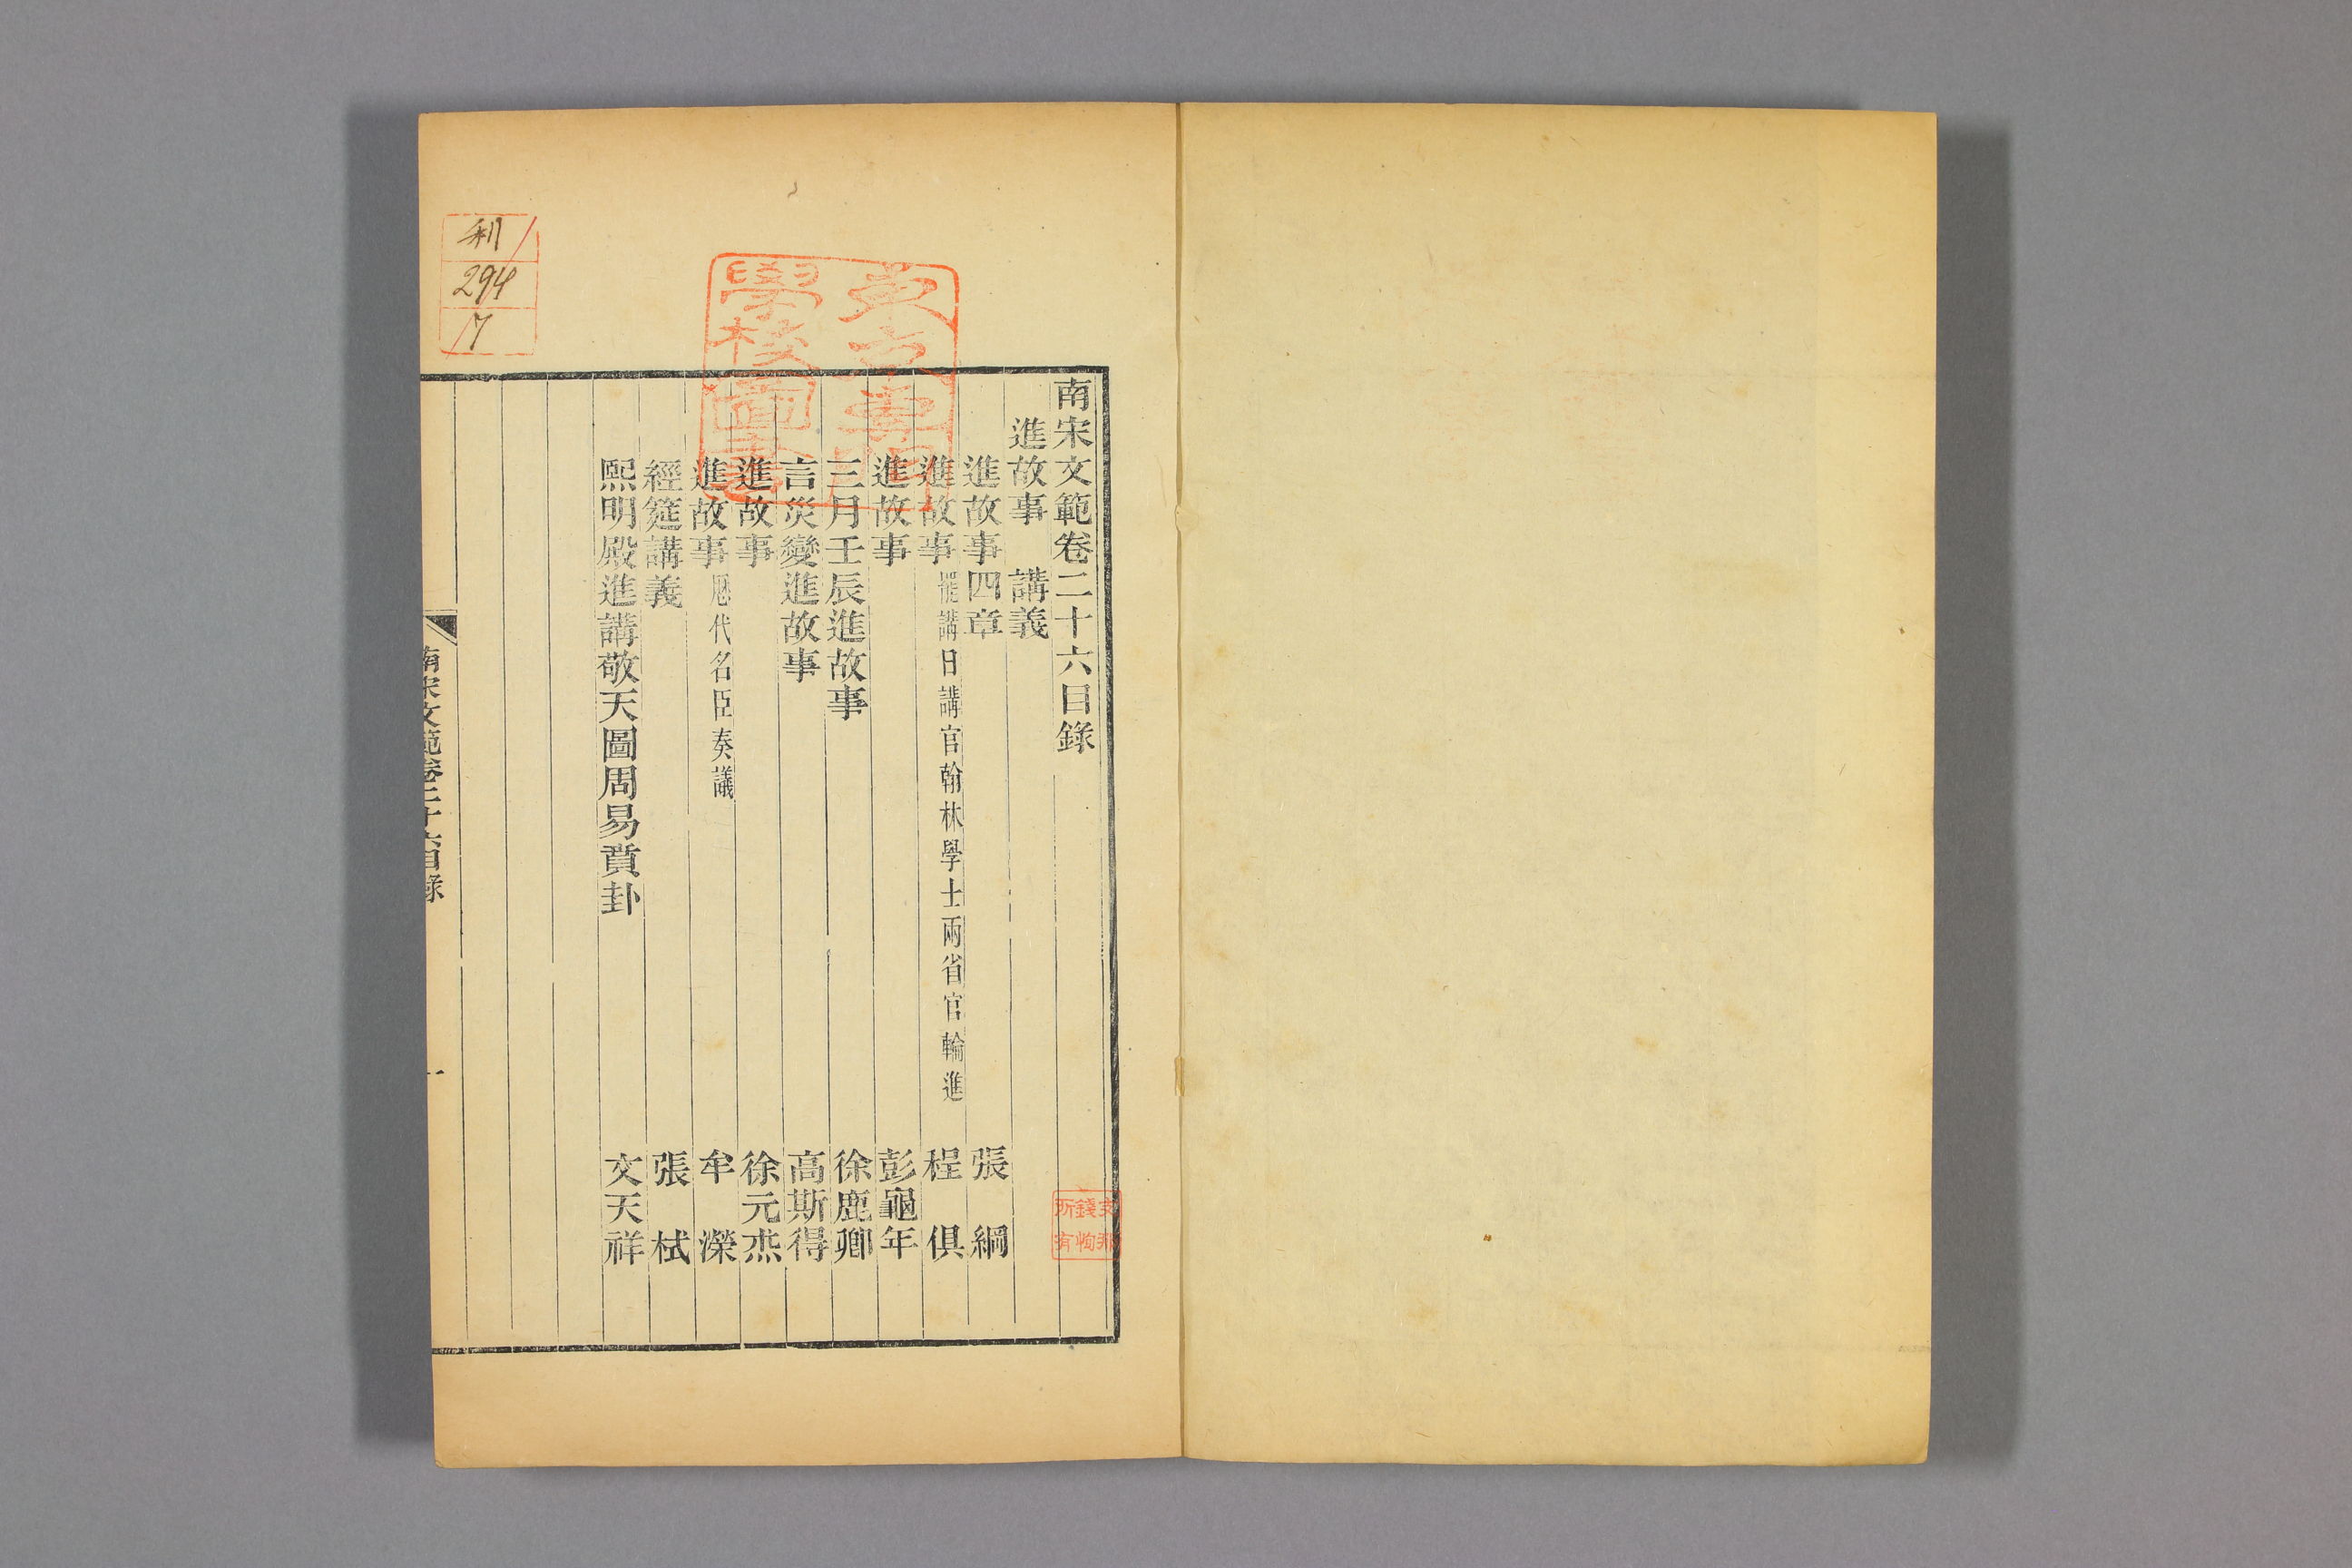 南宋文範卷二十六目錄
進故事 講義
進故事四章 張綱
進故事 罷講日講官翰林學士兩省官輪進 程俱
進故事 彭龜年
三月壬辰進故事 徐鹿卿
言災變進故事 高斯得
進故事 徐元杰
進故事 歷代名臣奏議 牟濚
經筵講義 張栻
熙明殿進講敬天圖周易賁卦 文天祥
南宋文範卷二十六目錄 一
294
17
學校圖
支那
錢恂
所有